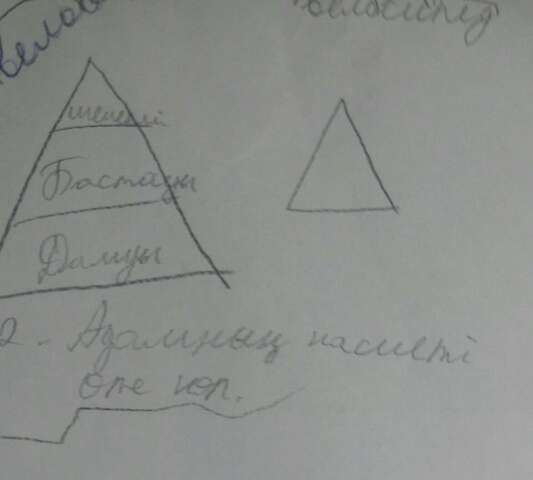 велосипед
шешімі
Бастауы
Дамуы
2 - Адамның қасиеті
өте көп.